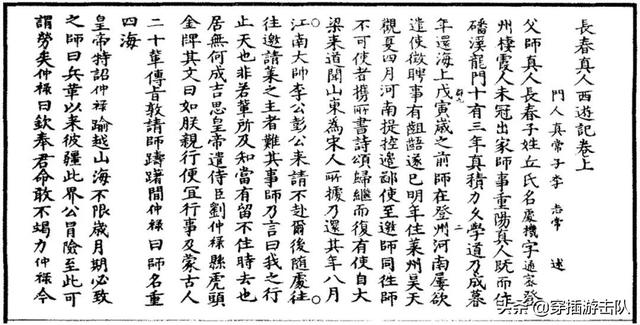 長春真人西遊記卷上
門人真常子李志常述
父師真人長春子姓丘氏名處機字通密登
州棲霞人未冠出家師事重陽真人既而住
磻溪龍門十有三年真積力久學道乃成暮
年還海上戊寅歲之前師在登州河南屢欲
遣使徵聘事有齟齬遂已明年住萊州昊天
觀夏四月河南提控邊鄙使至邀師同往師
不可使者攜所書詩頌歸繼而復有使自大
梁來道聞山東為宋人所據乃還其年八月
江南大帥李公彭公來請不赴爾後隨處往
往邀請萊之主者難其事師乃言曰我之行
止天也非若輩所及知當有留不住時去也
居無何成吉思皇帝遣侍臣劉仲祿縣虎頭
金牌其文曰如朕親行便宜行事及蒙古人
二十輩傳旨敦請師躊躇間仲祿曰師名重
四海
皇帝特詔仲祿踰越山海不限歲月期必致
之師曰兵革以來彼疆此界公冒險至此可
謂勞矣仲祿曰欽奉君命敢不竭力仲祿今
头条 @穿插游击队